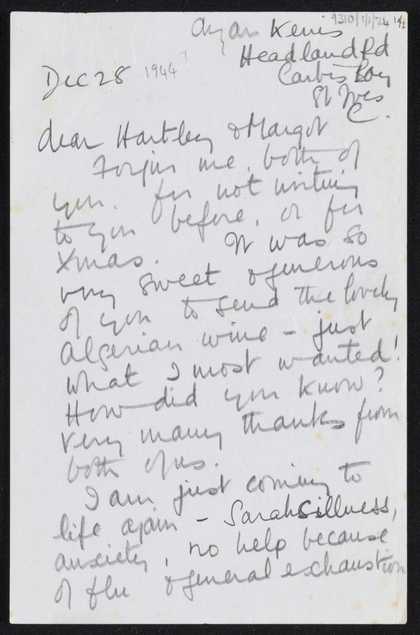 9310/1/1/24 1/2
Chy an Kerris
Headland Rd
Carbis Bay
St Ives
C.
Dec 28 1944
dear Hartley & Margot
Forgive me, both of
you, for not writing
to you before, or for
Xmas. It was so
very sweet & generous
of you to send the lovely
Algerian wine – just
what I most wanted!
How did you know?
Very many thanks from
both of us.
I am just coming to
life again – Sarah's illness,
anxiety, no help because
of flu & general exhaustion